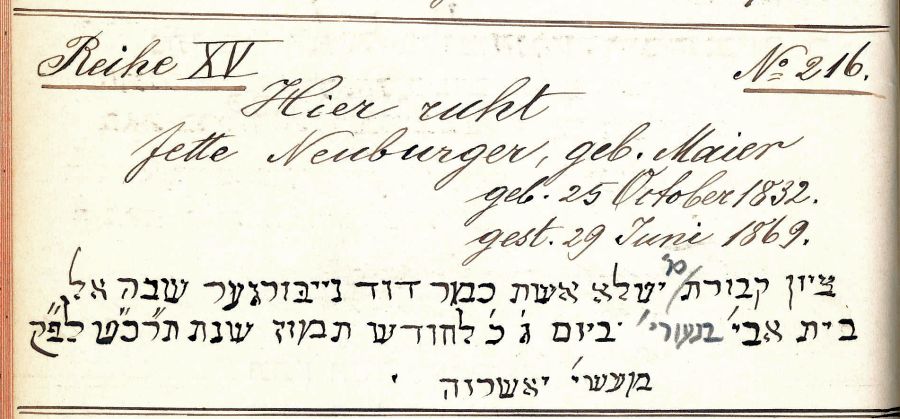 Reihe XV No. 216.
Hier ruht
Jette Neuburger, geb. Maier
geb. 25 October 1832.
gest. 29 Juni 1869.
ציון קבורת מ' יטלא אשת כמר דוד נייבורגער שבה אל
בית אבי' בנעורי' ביום ג' כ' לחודש תמוז שנת תרכ"ט לפ"ק
מעשי' יאשרוה